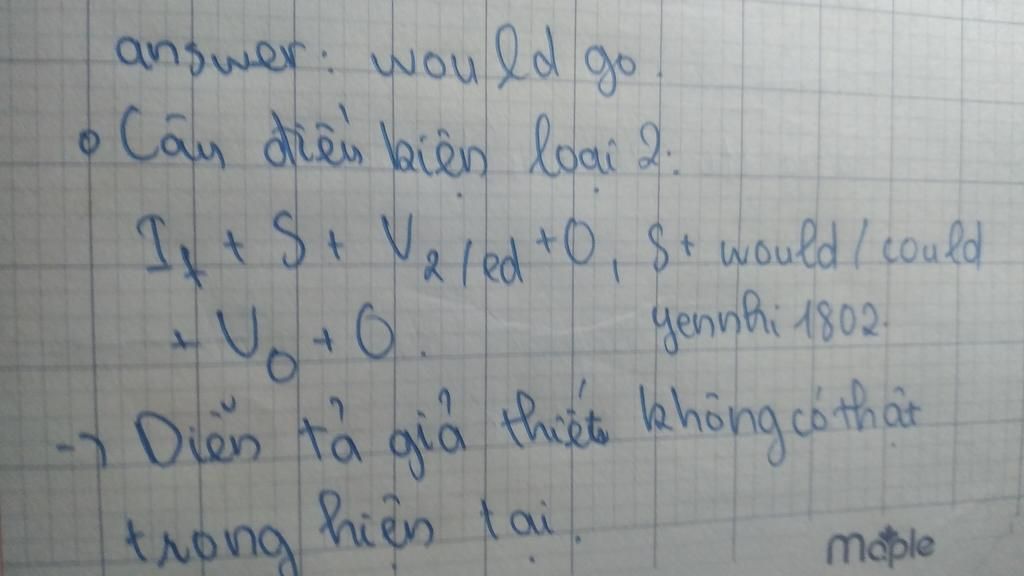 answer: would go.
Câu điều kiện loại 2:
If + S + V2/ed + O, S + would/could
+ V0 + O.
yennhi1802.
→ Diễn tả giả thiết không có thật
trong hiện tại.
maple